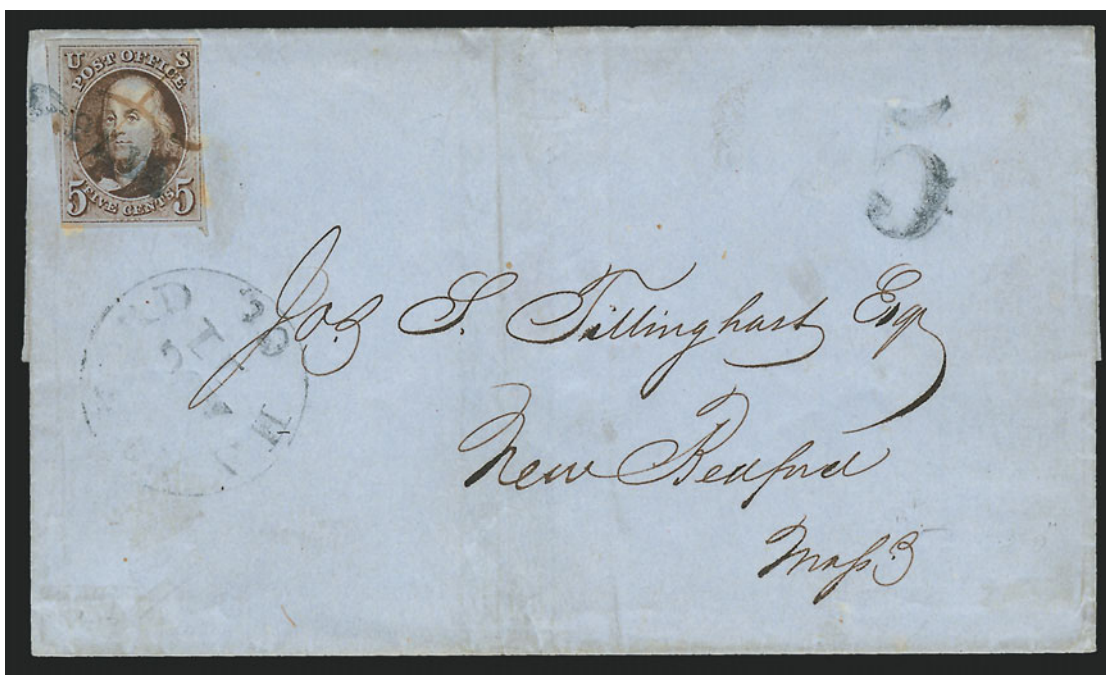 U S
POST OFFICE
5 FIVE CENTS 5
5
Jos S. Tillinghast Esq
New Bedford
Mass